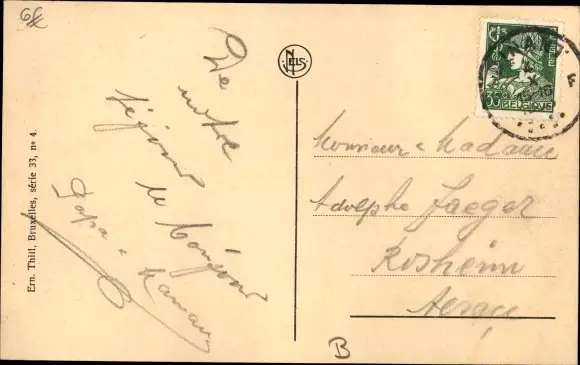 De notre
séjour
le bonjour
Papa & Maman
Ern. Thill, Bruxelles, série 33, n° 4.
NELS
35
BELGIQUE
Monsieur & Madame
Adolphe Jaeger
Rosheim
Alsace
B